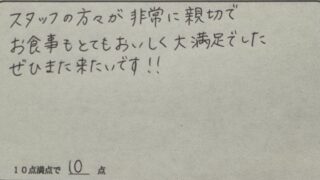 スタッフの方々が非常に親切で
お食事もとてもおいしく大満足でした
ぜひまた来たいです!!
10点満点で 10 点